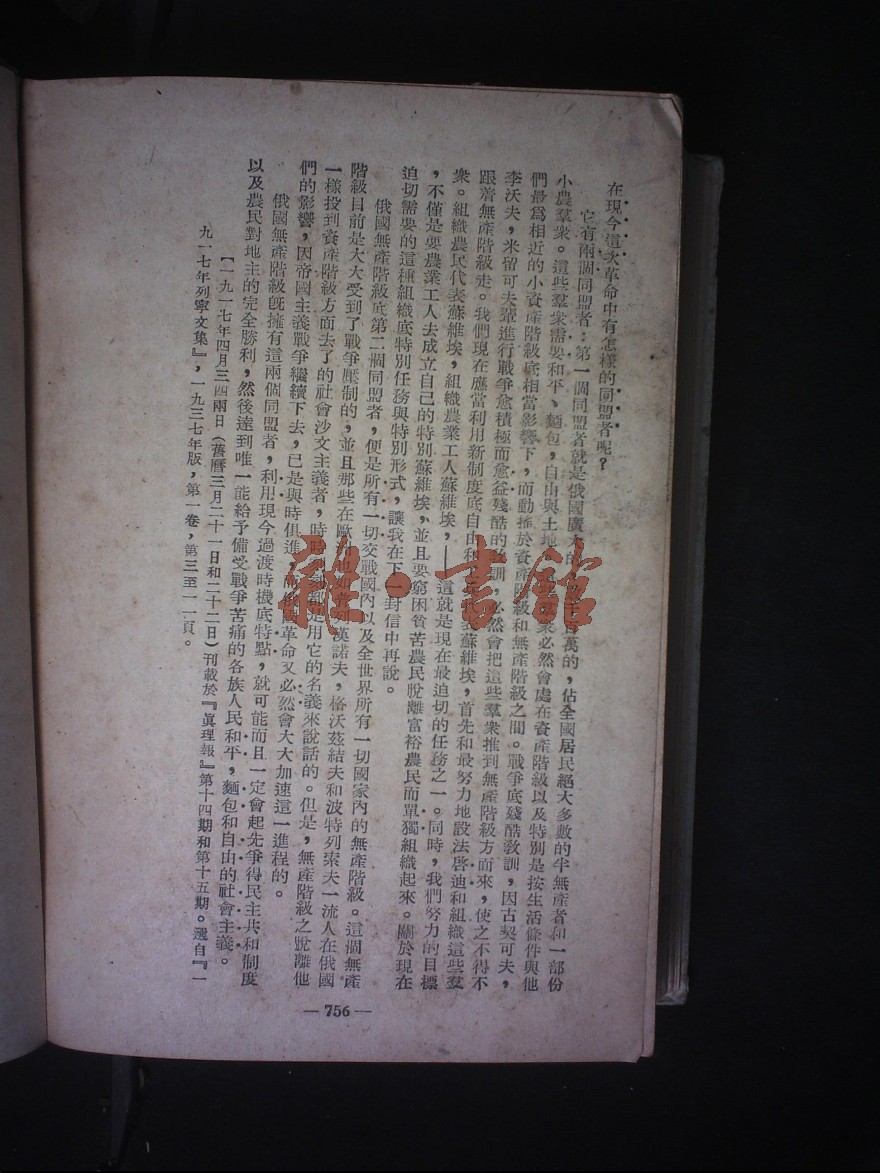 在現今這次革命中有怎樣的同盟者呢？
它有兩個同盟者：第一個同盟者就是俄國廣大的，百萬的，佔全國居民絕大多數的半無產者和一部份
小農羣衆。這些羣衆需要和平、麵包，自由與土地。衆必然會處在資產階級以及特別是按生活條件與他
們最爲相近的小資產階級底相當影響下，而動搖於資產階級和無產階級之間。戰爭底殘酷敎訓，因古契可夫，
李沃夫，米留可夫輩進行戰爭愈積極而愈益殘酷的敎訓，必然會把這些羣衆推到無產階級方面來，使之不得不
跟着無產階級走。我們現在應當利用新制度底自由和蘇維埃，首先和最努力地設法啓迪和組織這些羣
衆。組織農民代表蘇維埃，組織農業工人蘇維埃，——這就是現在最迫切的任務之一。同時，我們努力的目標
，不僅是要農業工人去成立自己的特別蘇維埃，並且要窮困貧苦農民脫離富裕農民而單獨組織起來。關於現在
迫切需要的這種組織底特別任務與特別形式，讓我在下一封信中再說。
俄國無產階級底第二個同盟者，便是所有一切交戰國內以及全世界所有一切國家內的無產階級。這個無產
階級目前是大大受到了戰爭壓制的，並且那些在歐洲也如普列漢諾夫，格沃茲結夫和波特列索夫一流人在俄國
一樣投到資產階級方面去了的社會沙文主義者，時時刻刻都是用它的名義來說話的。但是，無產階級之脫離他
們的影響，因帝國主義戰爭繼續下去，已是與時俱進，而俄國革命又必然會大大加速這一進程的。
俄國無產階級旣擁有這兩個同盟者，利用現今過渡時機底特點，就可能而且一定會起先爭得民主共和制度
以及農民對地主的完全勝利，然後達到唯一能給予備受戰爭苦痛的各族人民和平，麵包和自由的社會主義。
【一九一七年四月三四兩日（舊曆三月二十一日和二十二日）刊載於『眞理報』第十四期和第十五期。選自『一
九一七年列寧文集』，一九三七年版，第一卷，第三至一一頁。
— 756 —
雜·書館